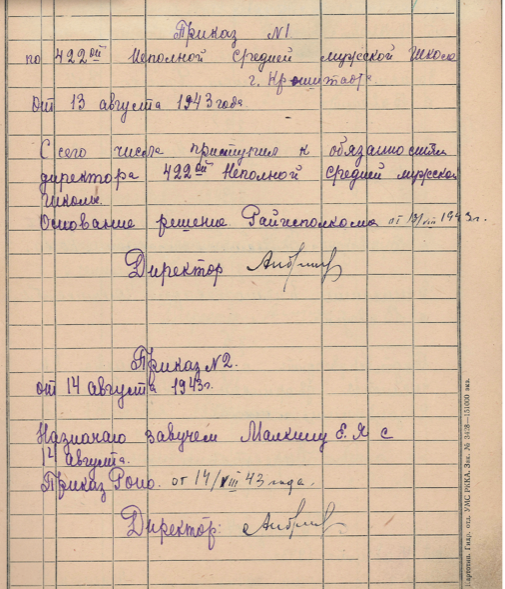 Приказ №1
по 422ой Неполной Средней мужской Школе
г. Кронштадта.
От 13 августа 1943 года
С сего числа приступил к обязанностям
директора 422ой Неполной Средней мужской
Школы.
Основание решение Райисполкома от 13/VIII 1943г.
Директор
Приказ №2.
от 14 августа 1943г.
Назначаю завучем Малкину Е. Я с
14 августа.
Приказ Роно. от 14/VIII 43 года.
Директор:
Картотип. Гидр. отд. УМС РККА, Зак. № 3428—151000 экз.